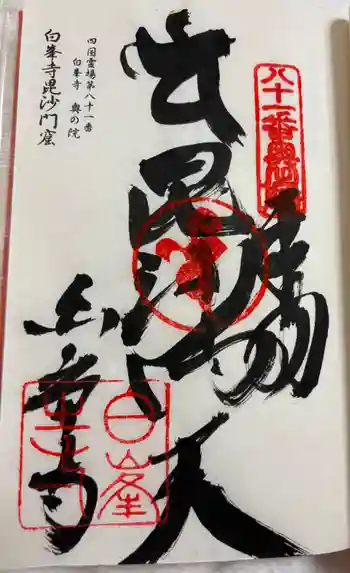 八十一番奥の院
毘沙門天
四国霊場第八十一番
白峯寺 奥の院
白峯寺毘沙門窟
白峯寺
白峯